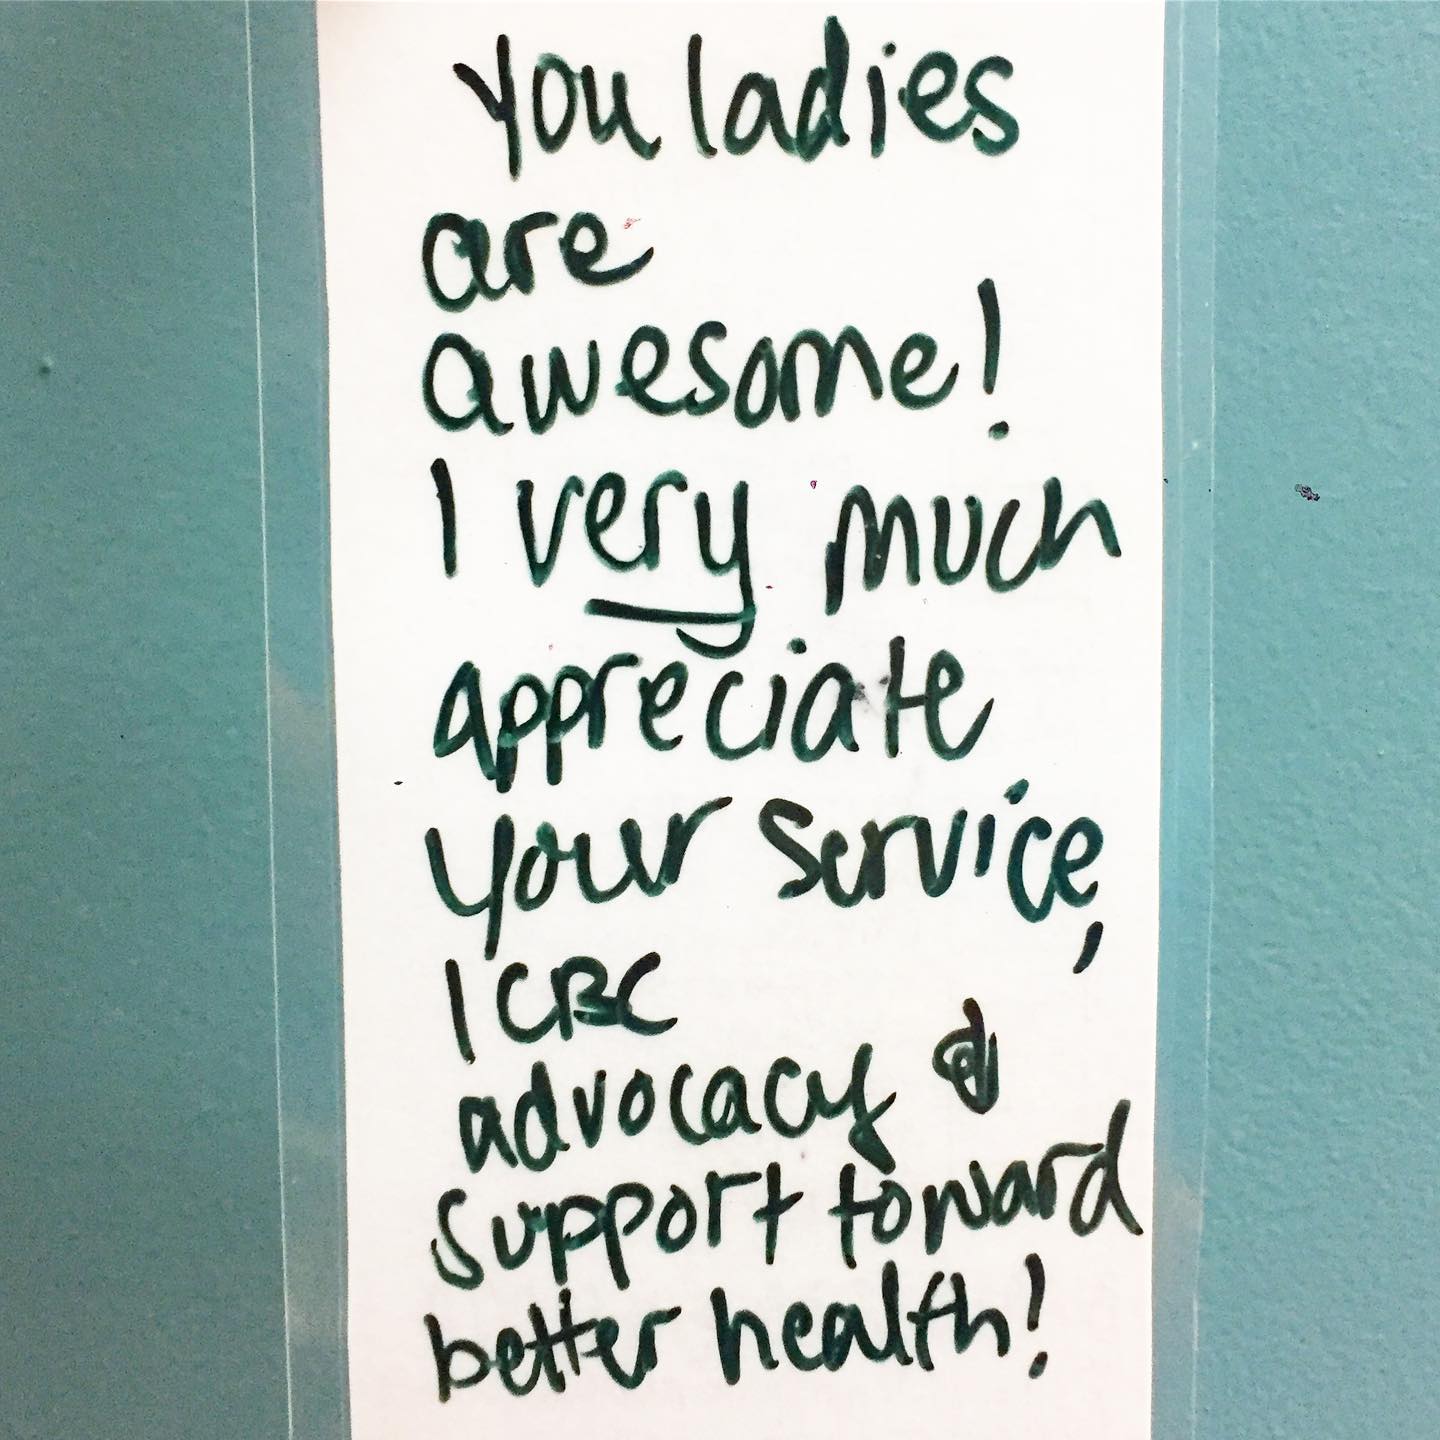 You ladies
are
awesome!
I very much
appreciate
your service,
ICBC
advocacy &
support toward
better health!